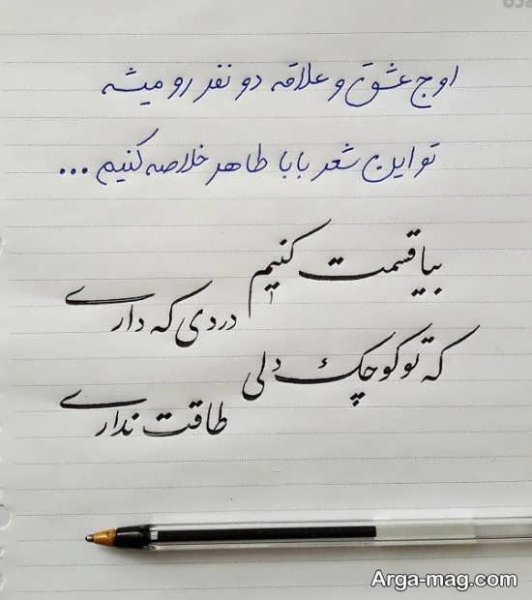 اوج عشق و علاقه دو نفر رو میشه
تو این شعر بابا طاهر خلاصه کنیم ...
بیا قسمت کنیم
دردی که داری
که تو کوچک دلی
طاقت نداری
Arga-mag.com